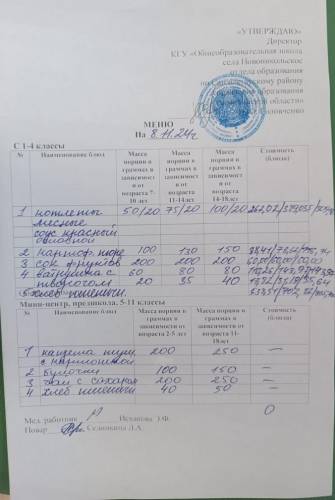 «УТВЕРЖДАЮ»
Директор
КГУ «Общеобразовательная школа
села Новоникольское
отдела образования
по району
образования
области»
МЕНЮ
На 8.11.24г
С 1-4 классы
№ Наименование блюд Масса порции в граммах в зависимости от возраста 7-10 лет Масса порции в граммах в зависимости от возраста 11-14лет Масса порции в граммах в зависимости от возраста 14-18лет Стоимость (блюда)
1 котлеты 50/20 75/20 100/20
мясные
соус красный
основной
2 картоф. пюре 100 130 150
3 сок фруктов 200 200 200
4 ватрушка с 60 80 80
творогом 20 35 40
хлеб пшеничн.
Мини-центр, предшкола, 5-11 классы
№ Наименование блюд Масса порции в граммах в зависимости от возраста 2-5 лет Масса порции в граммах в зависимости от возраста 11-18лет Стоимость (блюда)
1 капуста туш. 200 250 –
с картошкой
2 булочки 100 150 –
3 чай с сахаром 200 250 –
4 хлеб пшеничн 40 50 –
0
Мед. работник Исканова Э.Ф.
Повар Селюкина Л.А.